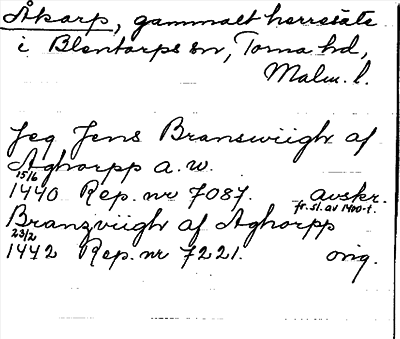 Åkarp, gammalt herresäte
i Blentarps sn, Torna hd,
Malm. l.
Jeg Jens Branswiigh af
Aghorpp a.w.
15/6
1440 Rep. nr 7087. avskr.
fr. sl. av 1400-t.
Branzviigh af Aghorpp
23/2
1442 Rep. nr 7221. orig.